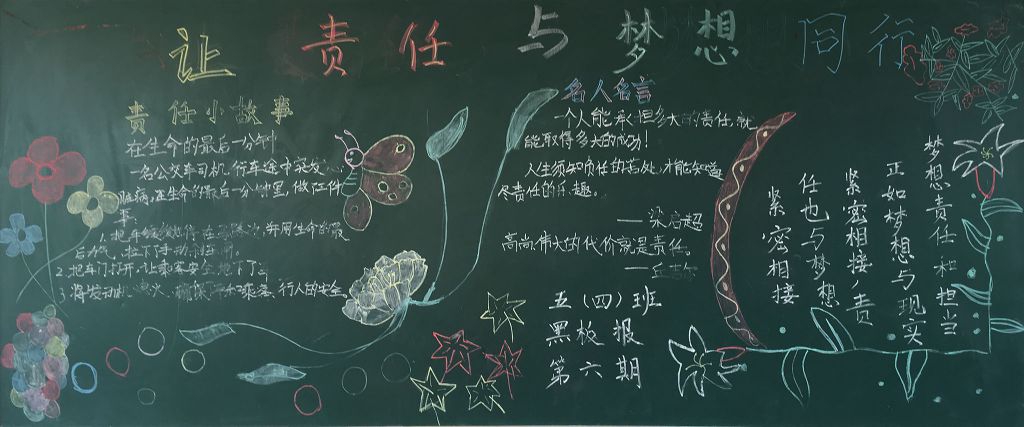 让责任与梦想同行
责任小故事
在生命的最后一分钟
一名公交车司机,行车途中突发心
脏病,在生命的最后一分钟里,做了三件
事:
1.把车缓缓地停在路边,并用生命的最
后力气,拉下手动刹车闸。
2.把车门打开,让乘客安全地下了车。
3.将发动机熄火,确保了车和乘客、行人的安全。
名人名言
一个人能承担多大的责任,就
能取得多大的成功!
人生须知负任的苦处,才能知道
尽责任的乐趣。
——梁启超
高尚伟大的代价就是责任。
五(四)班
黑板报
第六期
梦想责任和担当
正如梦想与现实
紧密相接,责
任也与梦想
紧密相接